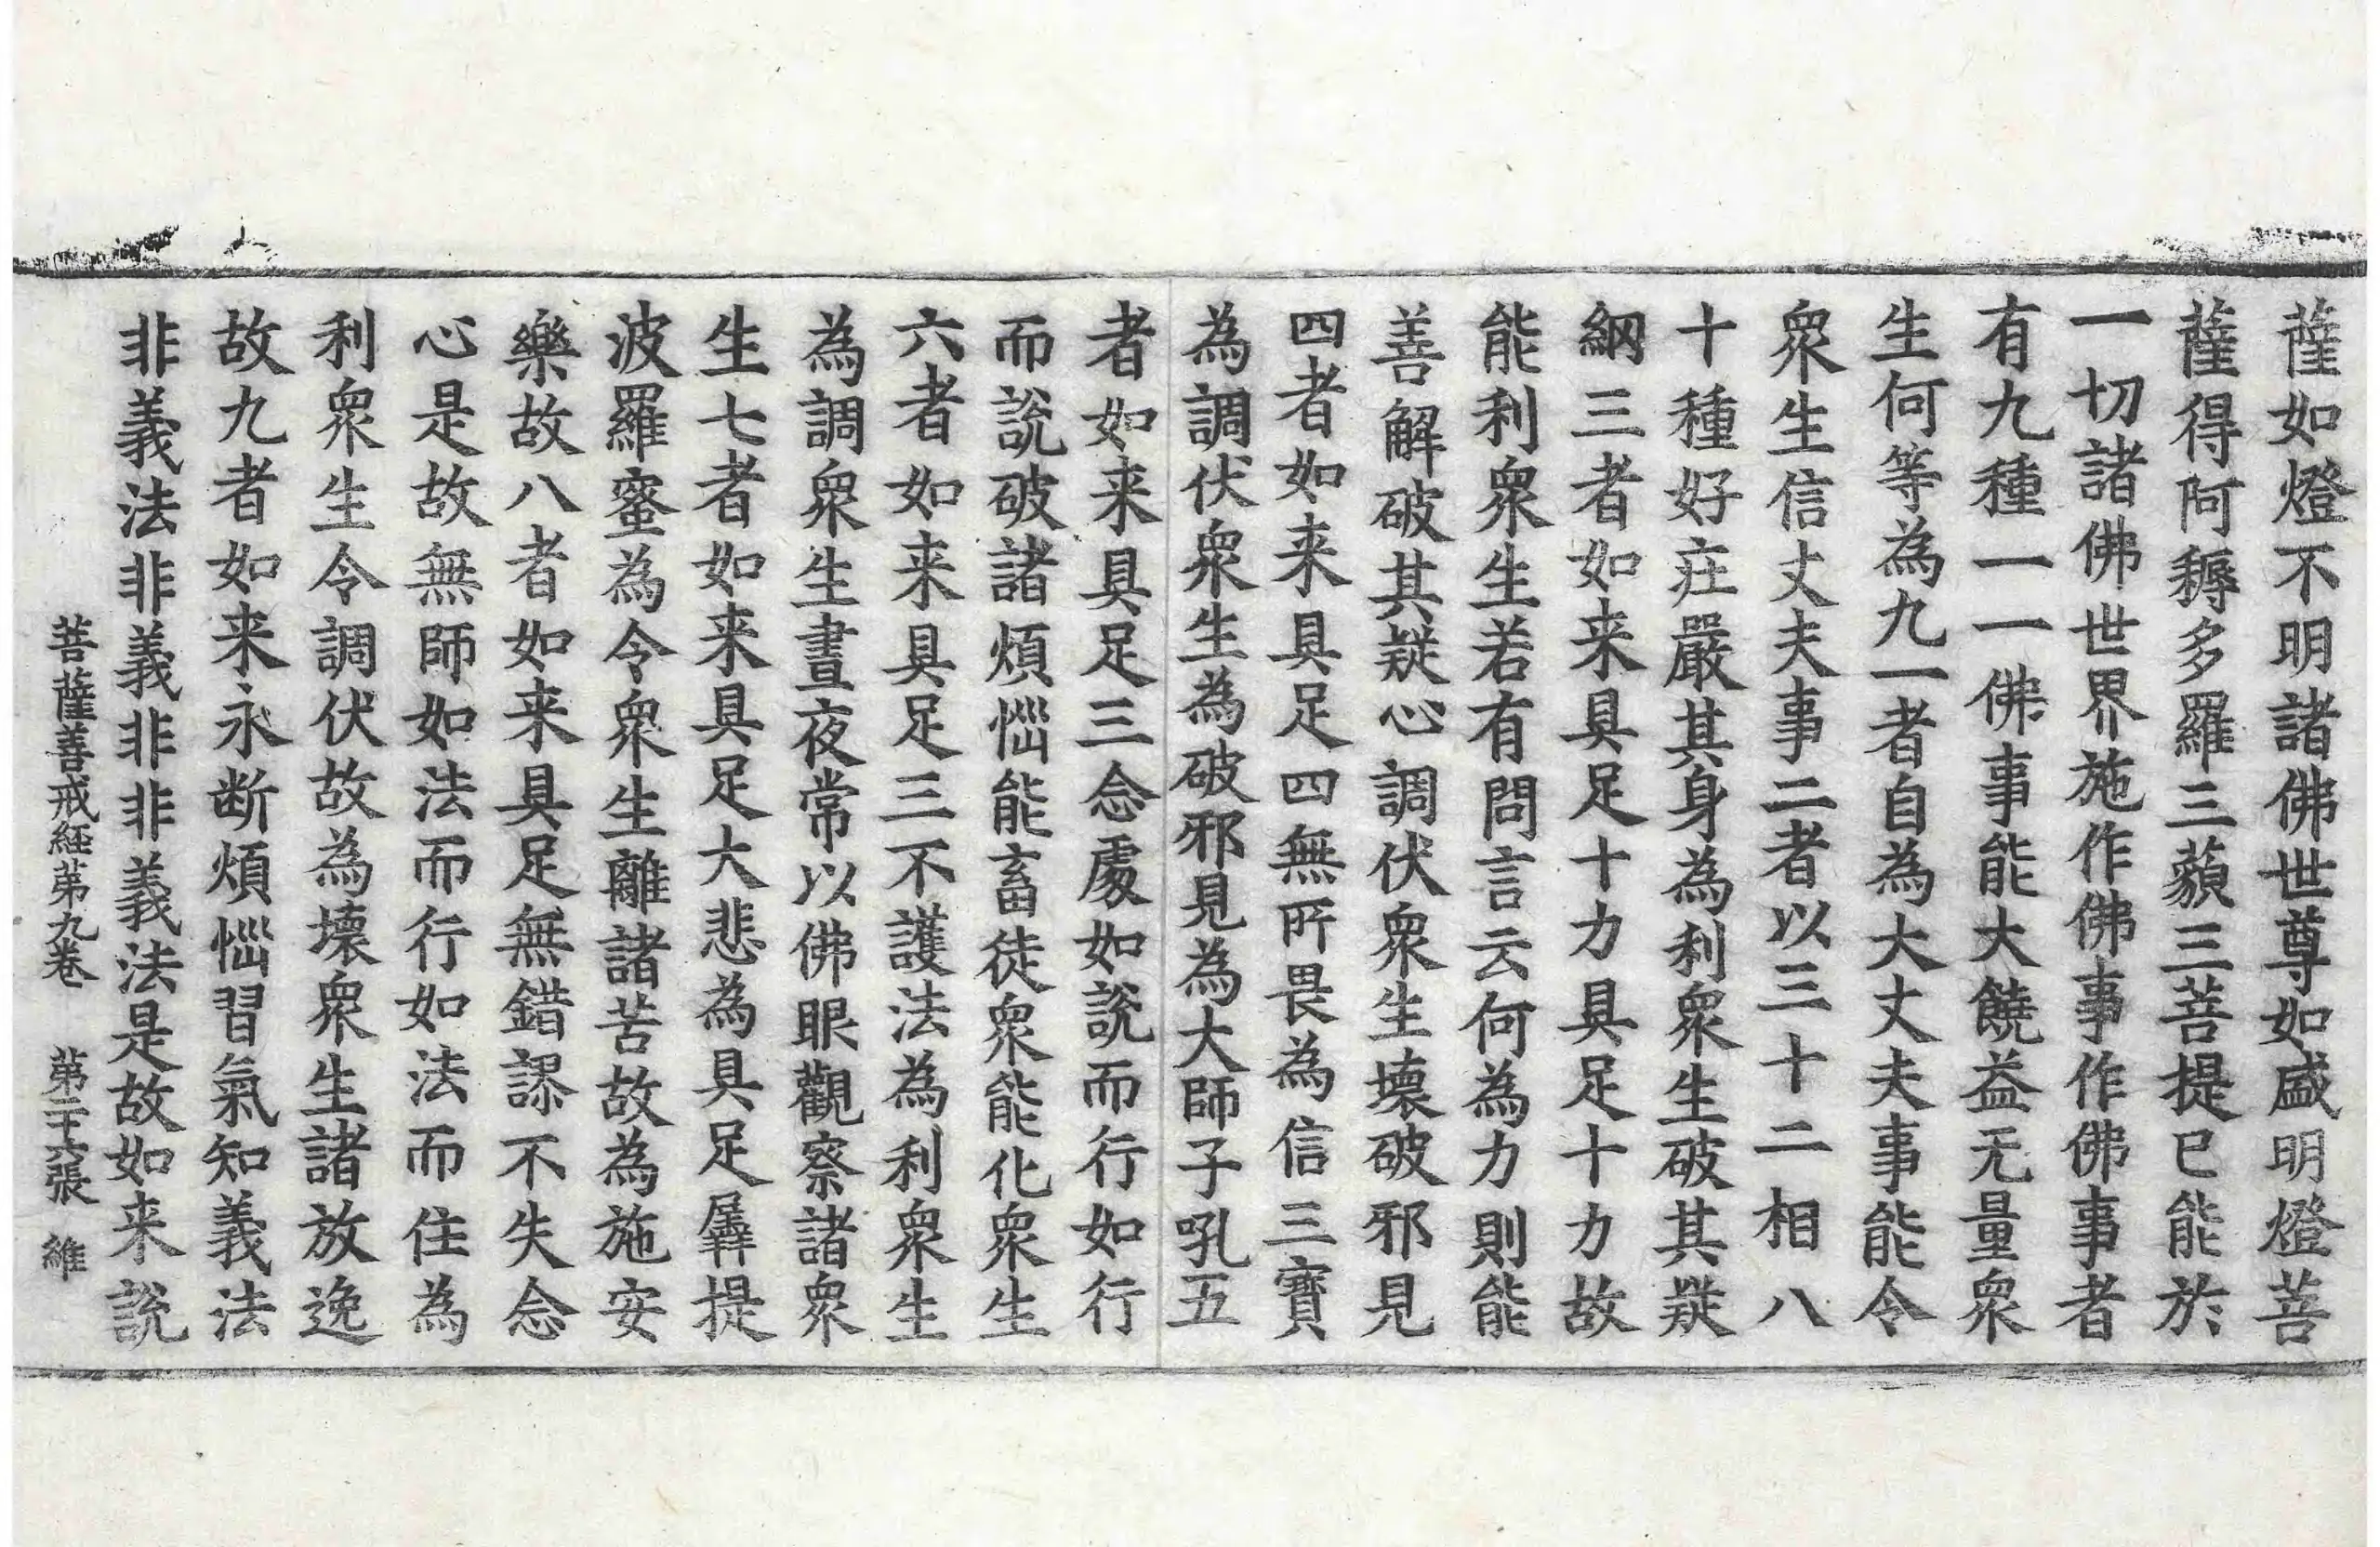 薩如燈不明諸佛世尊如盛明燈菩
薩得阿耨多羅三藐三菩提已能於
一切諸佛世界施作佛事作佛事者
有九種一一佛事能大饒益无量衆
生何等為九一者自為大丈夫事能令
衆生信丈夫事二者以三十二相八
十種好庄嚴其身為利衆生破其疑
網三者如来具足十力具足十力故
能利衆生若有問言云何為力則能
善解破其疑心調伏衆生壞破邪見
四者如来具足四無所畏為信三寶
為調伏衆生為破邪見為大師子吼五
者如来具足三念處如說而行如行
而說破諸煩惱能畜徒衆能化衆生
六者如来具足三不護法為利衆生
為調衆生晝夜常以佛眼觀察諸衆
生七者如来具足大悲為具足羼提
波羅蜜為令衆生離諸苦故為施安
樂故八者如来具足無錯謬不失念
心是故無師如法而行如法而住為
利衆生令調伏故為壞衆生諸放逸
故九者如来永断煩惱習氣知義法
非義法非義非非義法是故如来說
菩薩善戒經苐九卷 苐二十六張 維